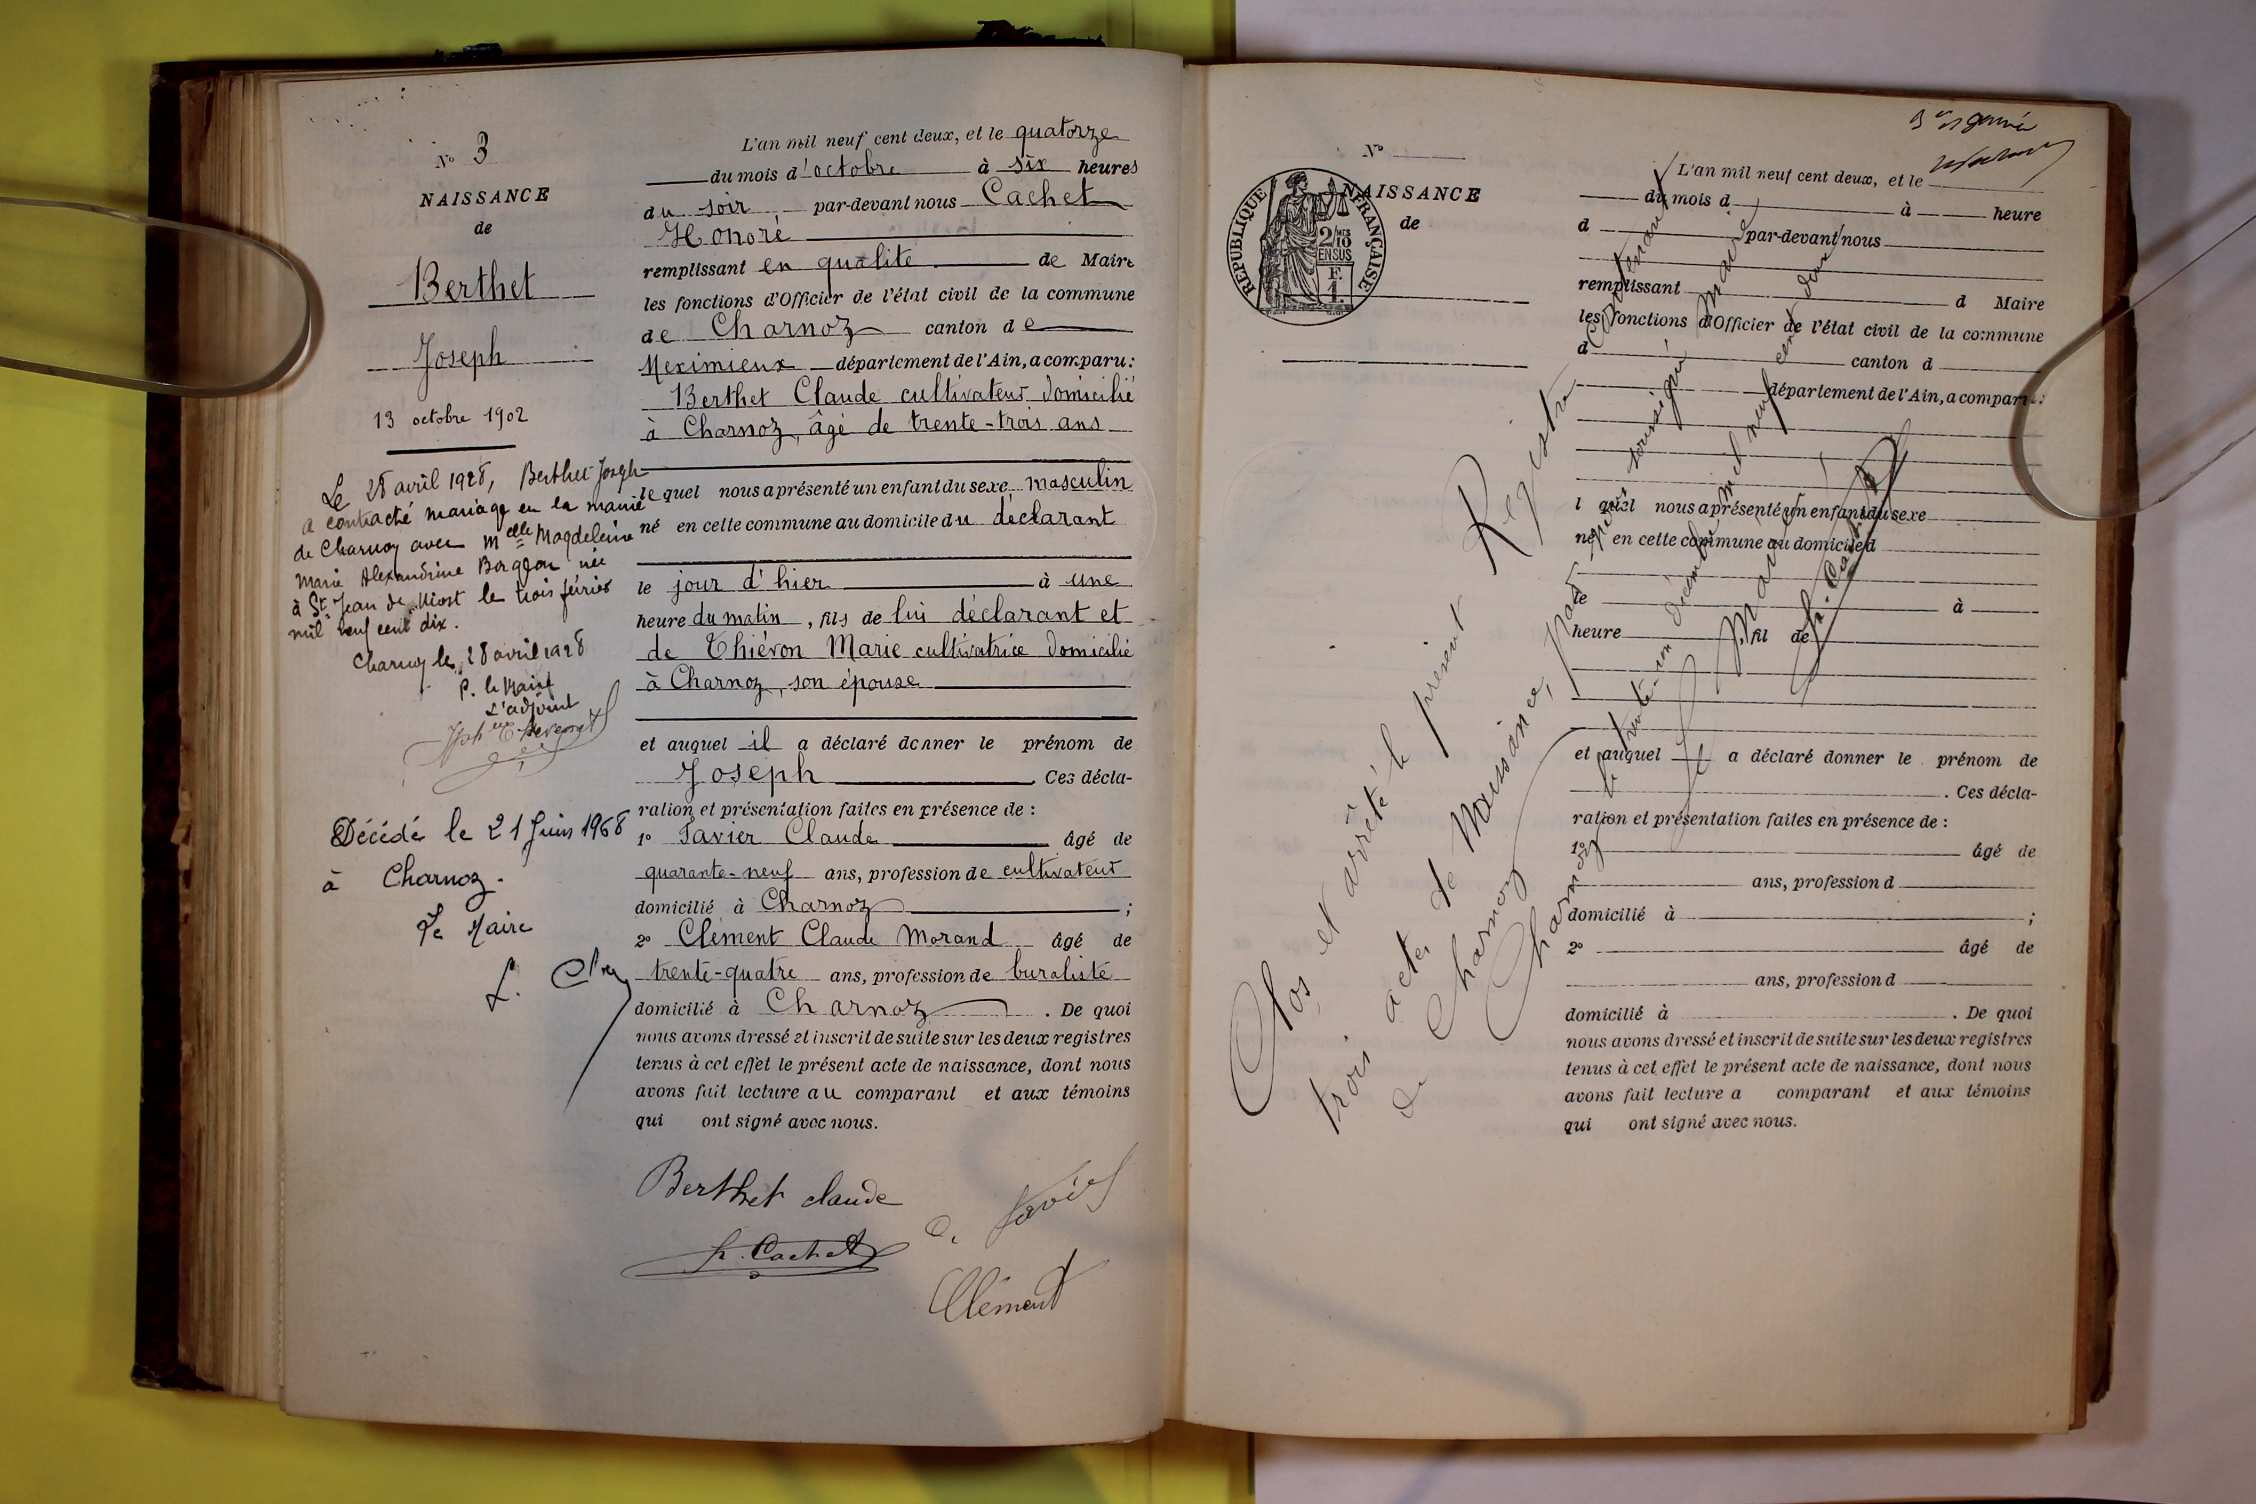 No 3
NAISSANCE
de
Berthet
Joseph
13 octobre 1902
Le 28 avril 1928, Berthet Joseph
a contracté mariage en la mairie
de Charnoz avec Melle Magdeleine
Marie Alexandrine née
à St Jean de Niost le trois février
mil neuf cent dix.
Charnoz le 28 avril 1928
P. le Maire
L'adjoint
Décédé le 21 Juin 1968
à Charnoz.
Le Maire
L'an mil neuf cent deux, et le quatorze
du mois d'octobre à six heures
du soir par-devant nous Cachet
Honoré
remplissant en qualité de Maire
les fonctions d'Officier de l'état civil de la commune
de Charnoz canton de
Meximieux département de l'Ain, a comparu:
Berthet Claude cultivateur domicilié
à Charnoz, âgé de trente-trois ans
lequel nous a présenté un enfant du sexe masculin
né en cette commune au domicile du déclarant
le jour d'hier à une
heure du matin, fils de lui déclarant et
de Thiévon Marie cultivatrice domicilié
à Charnoz, son épouse
et auquel il a déclaré donner le prénom de
Joseph Ces décla-
ration et présentation faites en présence de :
1º Javier Claude âgé de
quarante-neuf ans, profession de cultivateur
domicilié à Charnoz ;
2º Clément Claude Morand âgé de
trente-quatre ans, profession de buraliste
domicilié à Charnoz . De quoi
nous avons dressé et inscrit de suite sur les deux registres
tenus à cet effet le présent acte de naissance, dont nous
avons fait lecture au comparant et aux témoins
qui ont signé avec nous.
Berthet claude
h. Cachet
Clément
No
NAISSANCE
de
RÉPUBLIQUE FRANÇAISE
2/10
EN SUS
L'an mil neuf cent deux, et le
du mois d à heure
d par-devant nous
remplissant d Maire
les fonctions d'Officier de l'état civil de la commune
d canton d
département de l'Ain, a comparu :
l quel nous a présenté un enfant du sexe
né en cette commune au domicile d
le à
heure fil de
et auquel il a déclaré donner le prénom de
. Ces décla-
ration et présentation faites en présence de :
1º âgé de
ans, profession d
domicilié à ;
2º âgé de
ans, profession d
domicilié à . De quoi
nous avons dressé et inscrit de suite sur les deux registres
tenus à cet effet le présent acte de naissance, dont nous
avons fait lecture a comparant et aux témoins
qui ont signé avec nous.
Clos et arrêté le présent Registre contenant
trois actes de Naissance, par nous soussigné Maire
de Charnoz
Charnoz le trente-un décembre mil neuf cent deux
Le Maire
h. Cachet